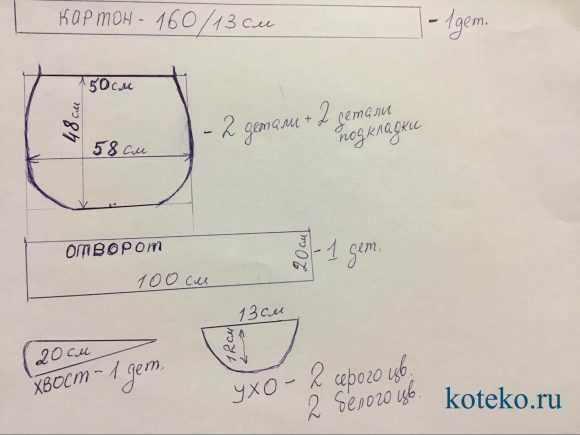 КАРТОН - 160/13 см
- 1 дет.
50 см
48 см
58 см
- 2 детали + 2 детали
подкладки
ОТВОРОТ
20 см
- 1 дет.
100 см
13 см
12 см
20 см
ХВОСТ - 1 дет.
УХО - 2 серого цв.
2 белого цв.
koteko.ru